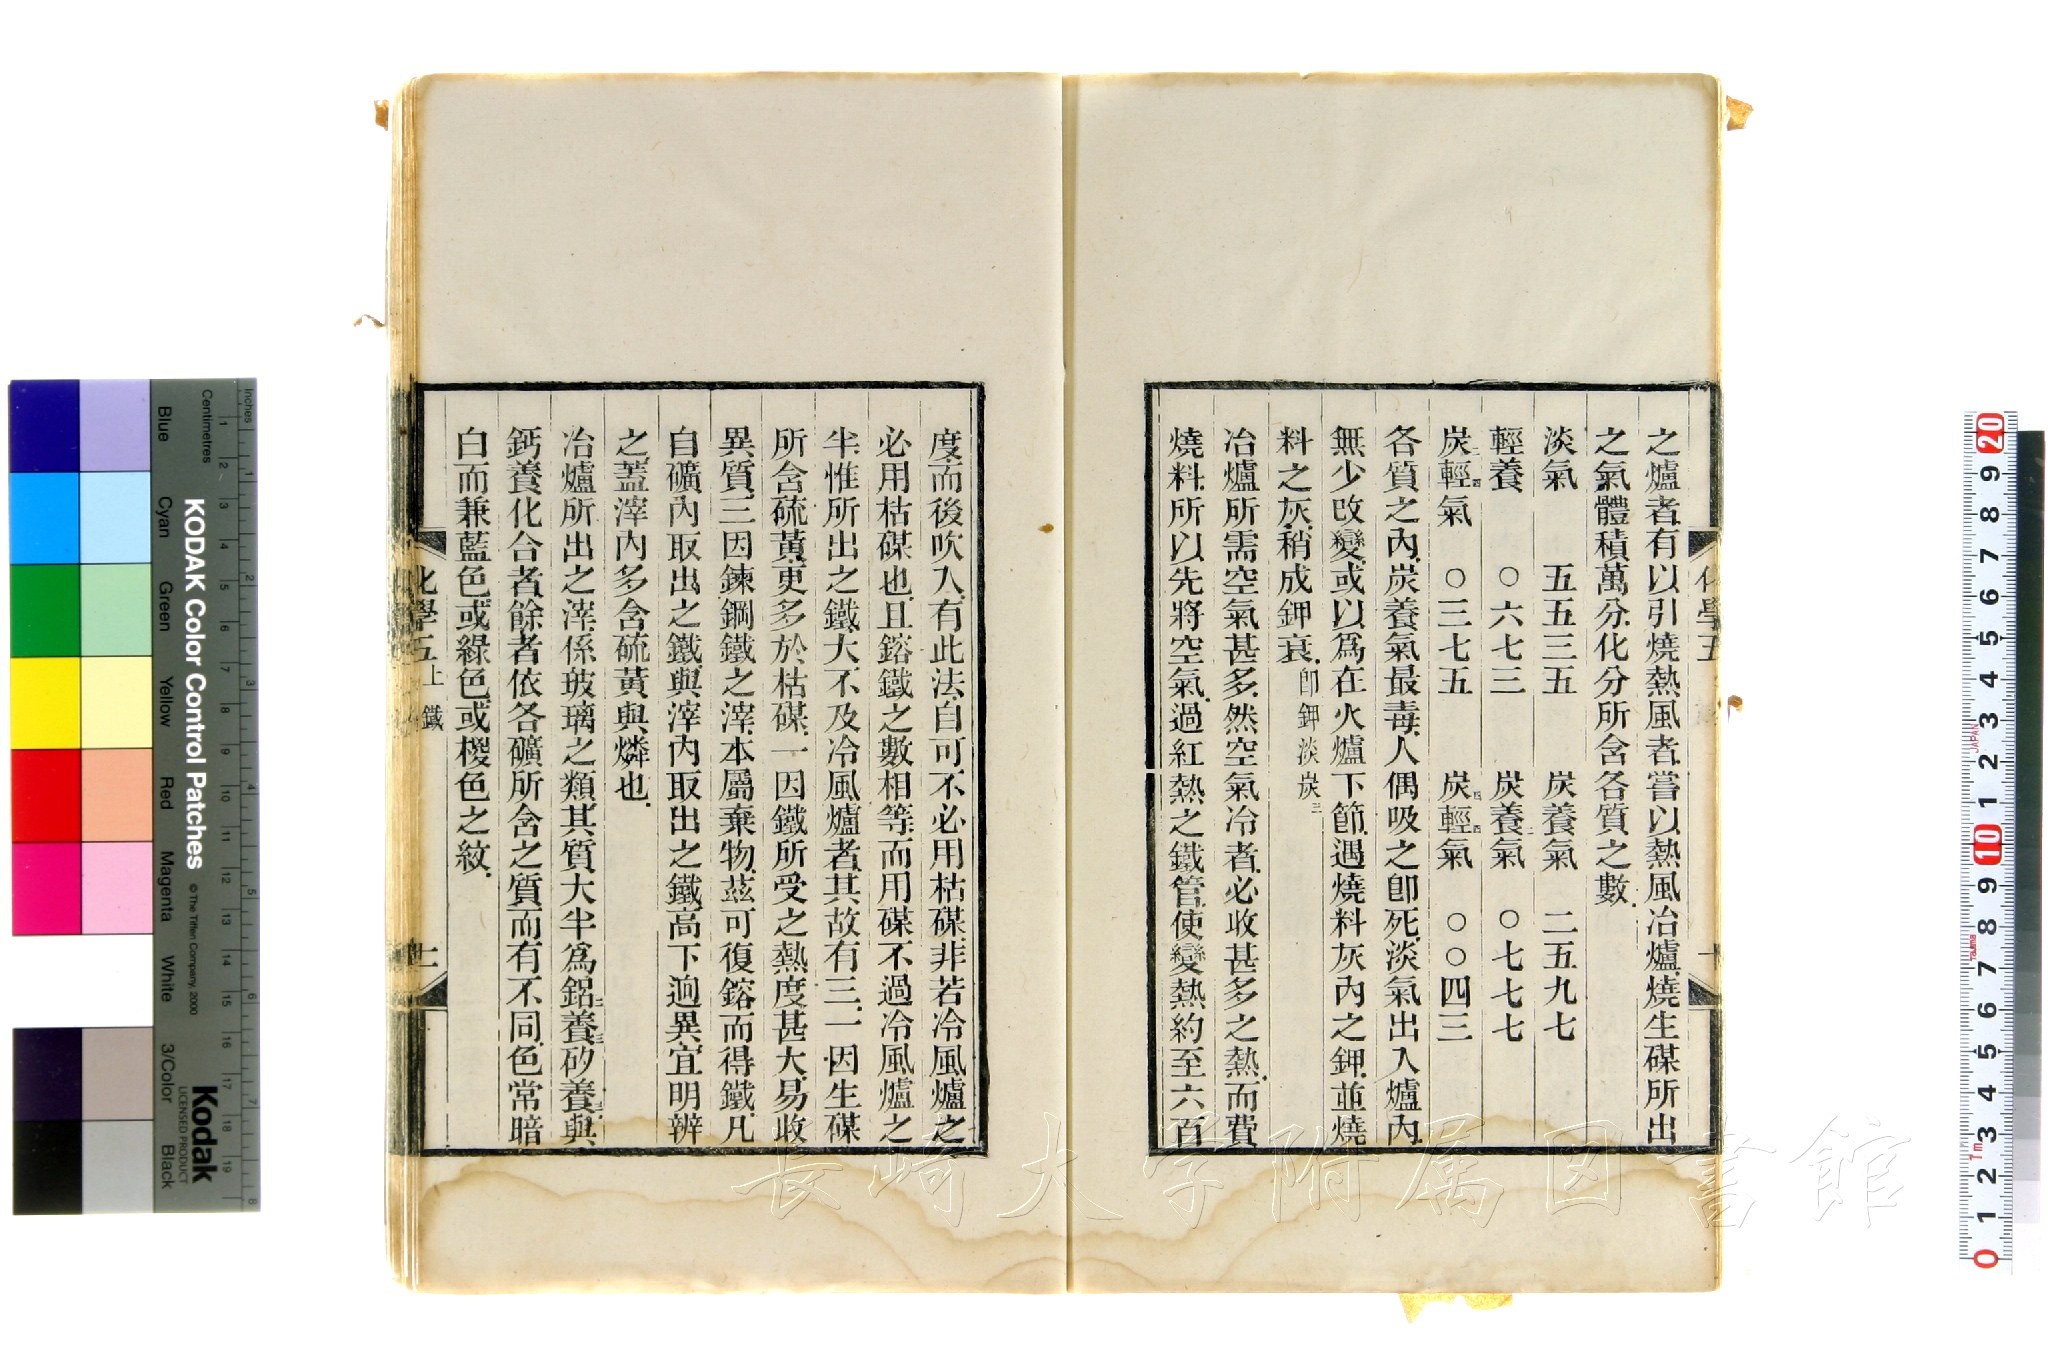 之爐者有以引燒熱風者嘗以熱風冶爐燒生𥖎所出
之氣體積萬分化分所含各質之數
淡氣　五五三五　炭養氣　二五九七
輕養　〇六七三　炭養二氣　〇七七七
炭二輕四氣　〇三七五　炭四輕四氣　〇〇四三
各質之內炭養氣最毒人偶吸之卽死淡氣出入爐內
無少改變或以爲在火爐下節遇燒料灰內之鉀並燒
料之灰稍成鉀衰卽鉀淡炭二
冶爐所需空氣甚多然空氣冷者必收甚多之熱而費
燒料所以先將空氣過紅熱之鐵管使變熱約至六百
化學五
十
度而後吹入有此法自可不必用枯煤非若冷風爐之
必用枯煤也且鎔鐵之數相等而用煤不過冷風爐之
半惟所出之鐵大不及冷風爐者其故有三一因生煤
所含硫黃更多於枯煤一因鐵所受之熱度甚大易收
異質三因鍊鋼鐵之滓本屬棄物茲可復鎔而得鐵凡
自礦內取出之鐵與滓內取出之鐵高下逈異宜明辨
之蓋滓內多含硫黃與燐也
冶爐所出之滓係玻璃之類其質大半爲鋁二養三矽養三與
鈣養化合者餘者依各礦所含之質而有不同色常暗
白而兼藍色或綠色或椶色之紋
化學五上　鐵
十一
KODAK Color Control Patches
© The Tiffen Company, 2000
Kodak
LICENSED PRODUCT
Inches
Centimetres
Blue
Cyan
Green
Yellow
Red
Magenta
White
3/Color
Black
長崎大学附属図書館
JAPAN